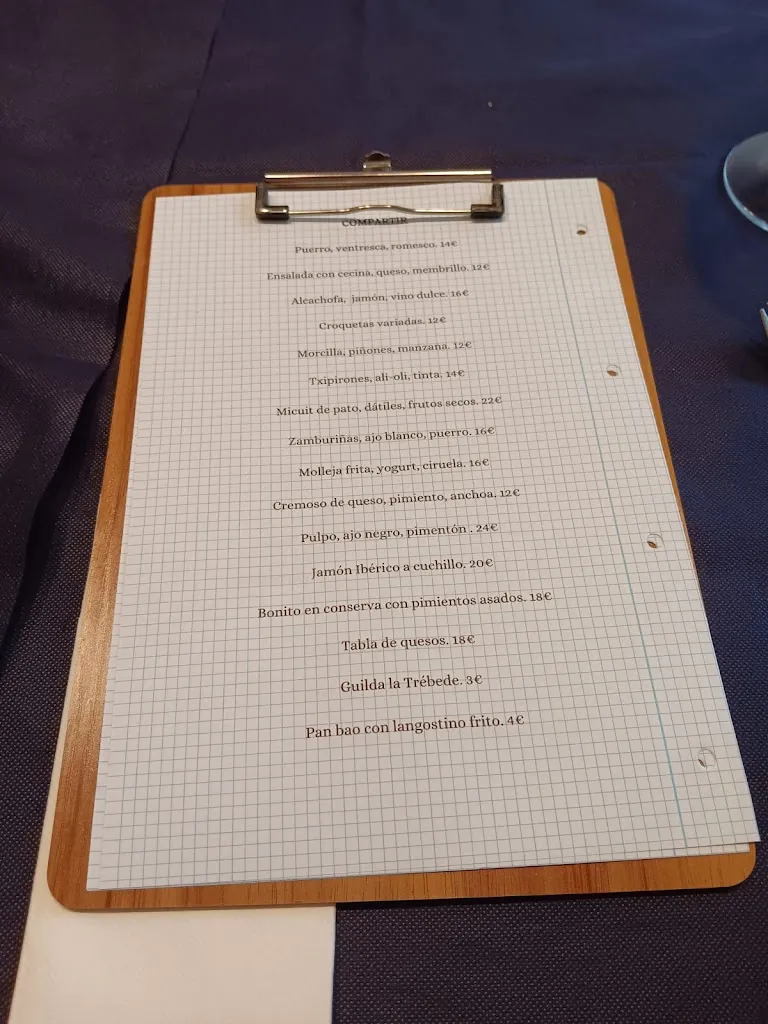 COMPARTIR
Puerro, ventresca, romesco. 14€
Ensalada con cecina, queso, membrillo. 12€
Alcachofa, jamón, vino dulce. 16€
Croquetas variadas. 12€
Morcilla, piñones, manzana. 12€
Txipirones, ali-oli, tinta. 14€
Micuit de pato, dátiles, frutos secos. 22€
Zamburiñas, ajo blanco, puerro. 16€
Molleja frita, yogurt, ciruela. 16€
Cremoso de queso, pimiento, anchoa. 12€
Pulpo, ajo negro, pimentón . 24€
Jamón Ibérico a cuchillo. 20€
Bonito en conserva con pimientos asados. 18€
Tabla de quesos. 18€
Guilda la Trébede. 3€
Pan bao con langostino frito. 4€